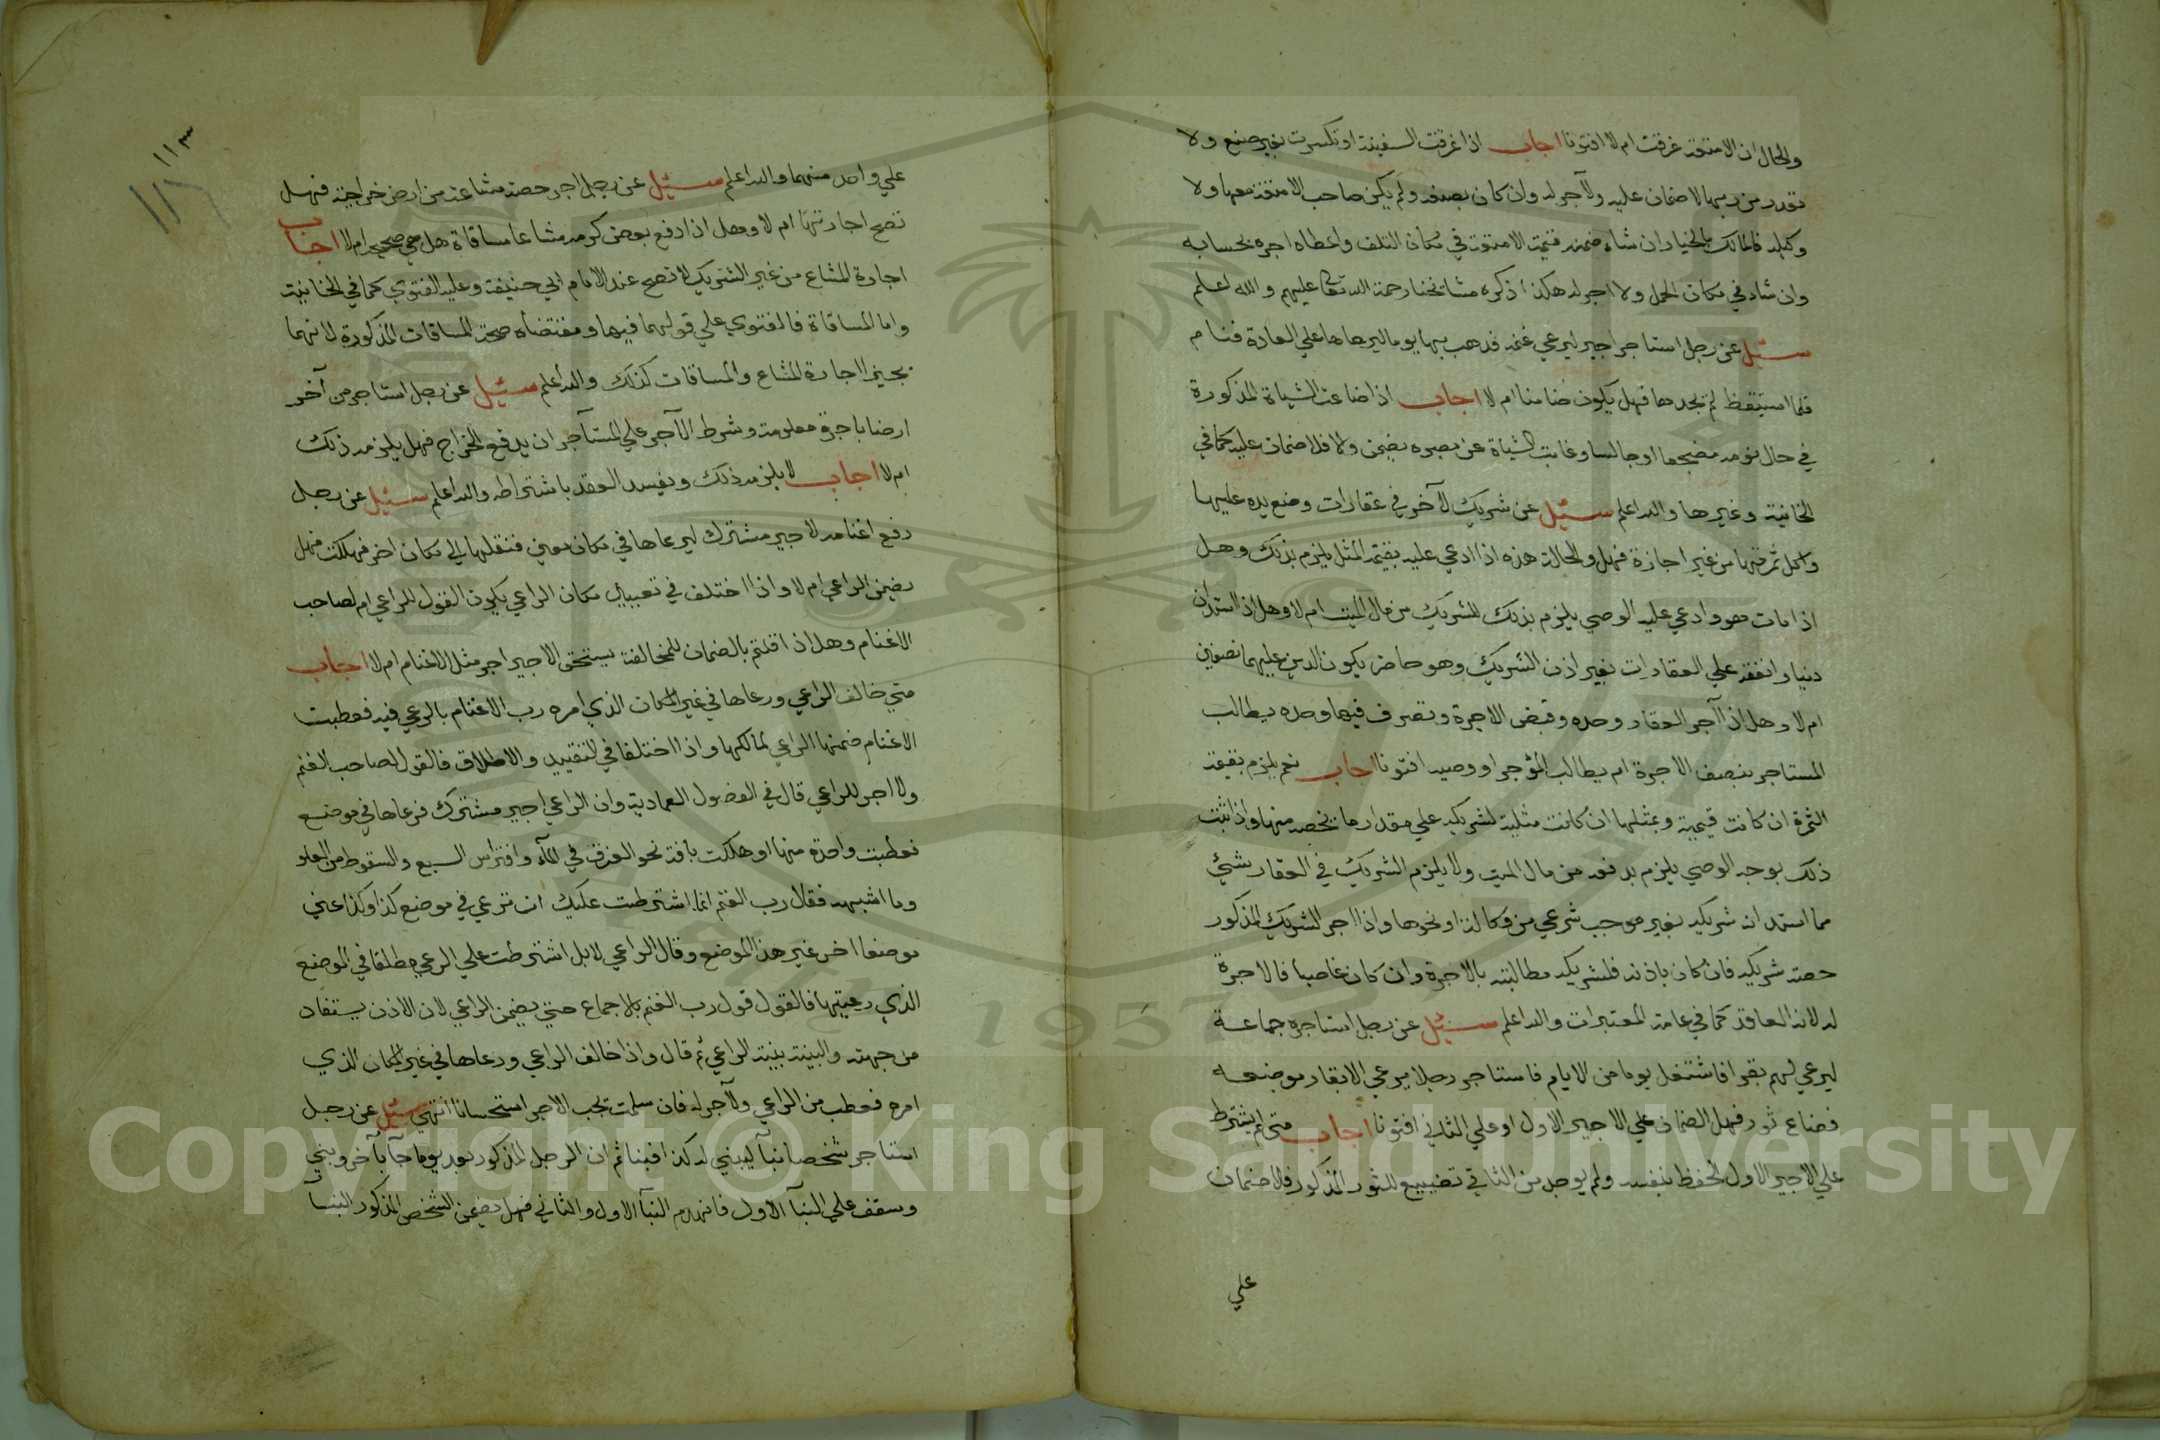 والحال ان الامتعة غرقت ام لا افتونا اجاب اذا غرقت السفينة او تكسرت بغير صنع ولا
تعدد من ربها لا ضمان عليه ولا آجر له وان كان بصنعه ولم يكن صاحب الامتعة معها ولا
وكيله فالمالك بالخيار ان شاء ضمنه قيمة الامتعة في مكان التلف واعطاه اجره بحسابه
وان شاء في مكان الحمل ولا اجر له هكذا ذكره مشائخنا رحمة الله تعالى عليهم والله اعلم
سئيل عن رجل استاجر اجير ليرعي غنمه فذهب بها يوما ليرعاها علي العادة فنام
فلما استيقظ لم يجدها فهل يكون ضامنا ام لا اجاب اذا ضاعت الشياة المذكورة
في حال نومه مضجعا او جالسا وغابت الشياة عن بصره يضمن والا فلا ضمان عليه كما في
الخانية وغيرها والله اعلم سئيل عن شريك لآخر في عقارات وضع يده عليها
واكل ثمرتها من غير اجازة فهل والحالة هذه اذا ادعي عليه بقيمة المثل يلزم بذلك وهل
اذا مات هو وادعي عليه الوصي يلزم بذلك للشريك من مال الميت ام لا وهل اذا استدان
دينا وانفقه علي العقارات بغير اذن الشريك وهو حاضر يكون الدين عليهما نصفين
ام لا وهل اذا آجر العقار وحده وقبض الاجرة وتصرف فيها وحده يطالب
المستاجر بنصف الاجرة ام يطالب المؤجر او وصيه افتونا اجاب نعم يلزم بقيمة
الثمرة ان كانت قيمية وبمثلها ان كانت مثلية لشريكه علي مقدار ما يخصه منها واذا ثبت
ذلك بوجه الوصي يلزم بدفعه من مال الميت ولا يلزم الشريك في العقار بشئي
مما استدانه شريكه بغير موجب شرعي من وكالة او نحوها واذا اجر الشريك المذكور
حصة شريكه فان كان باذنه فلشريكه مطالبته بالاجرة وان كان غاصبا فالاجرة
له لانه العاقد كما في عامة المعتبرات والله اعلم سئيل عن رجل استاجره جماعة
ليرعي لهم بقرا فاشتغل يوما من الايام فاستاجر رجلا يرعي الابقار موضعه
فضاع ثور فهل الضمان علي الاجير الاول او علي الثاني افتونا اجاب متي لم يشترط
علي الاجير الاول الحفظ بنفسه ولم يوجد من الثاني تضييع للثور المذكور فلا ضمان
علي
١١٣
علي واحد منهما والله اعلم سئيل عن رجل اجر حصة مشاعة من ارض خراجية فهل
تصح اجارتها ام لا وهل اذا دفع بعض كرمه مشاعا مساقاة هل هي صحيحه ام لا اجاب
اجارة المشاع من غير الشريك لا تصح عند الامام ابي حنيفة وعليه الفتوي كما في الخانية
واما المساقاة فالمفتوي علي قولهما فيها ومقتضاه صحة المساقات المذكورة لانهما
يجيزا اجارة المشاع والمساقات كذلك والله اعلم سئيل عن رجل استاجر من آخر
ارضا باجرة معلومة وشرط الآجر علي المستآجر ان يدفع الخراج فهل يلزمه ذلك
ام لا اجاب لا يلزمه ذلك ويفسد العقد باشتراطه والله اعلم سئيل عن رجل
دفع اغنامه لاجير مشترك ليرعاها في مكان معين فنقلها الي مكان اخر فهلكت فهل
يضمن الراعي ام لا واذا اختلف في تعيين مكان الراعي يكون القول للراعي ام لصاحب
الاغنام وهل اذا قلتم بالضمان للمخالفة يستحق الاجير اجر مثل الاغنام ام لا اجاب
متي خالف الراعي ورعاها في غير المكان الذي امره رب الاغنام بالرعي فيه فعطبت
الاغنام ضمنها الراعي لمالكها واذا اختلفا في التقييد والاطلاق فالقول لصاحب الغنم
ولا اجر للراعي قال في الفصول العمادية وان الراعي اجير مشترك فرعاها في موضع
فعطبت واحدة منها او هلكت بافة نحو الغرق في المآء وافتراس السبع والسقوط من العلو
وما اشبهه فقال رب الغنم انما اشترطت عليك ان ترعي في موضع كذا وكذا عني
موضعا اخر غير هذا الموضع وقال الراعي لا بل اشترطت علي الرعي مطلقا في الموضع
الذي رعيتها فالقول قول رب الغنم بالاجماع حتي يضمن الراعي لان الاذن يستفاد
من جهته والبينة بينة الراعي ثم قال واذا خالف الراعي ورعاها في غير المكان الذي
امره فعطب من الراعي ولا آجر له فان سلمت تجب الاجر استحسانا انتهي سئيل عن رجل
استاجر شخصا نبآ ليبني له كذا فبنا ثم ان الرجل المذكور بعد يوما جآ بآخر وبني
وسقف علي البنآ الاول فانهدم البنآ الاول والثاني فهل يضمن الشخص المذكور البنآ